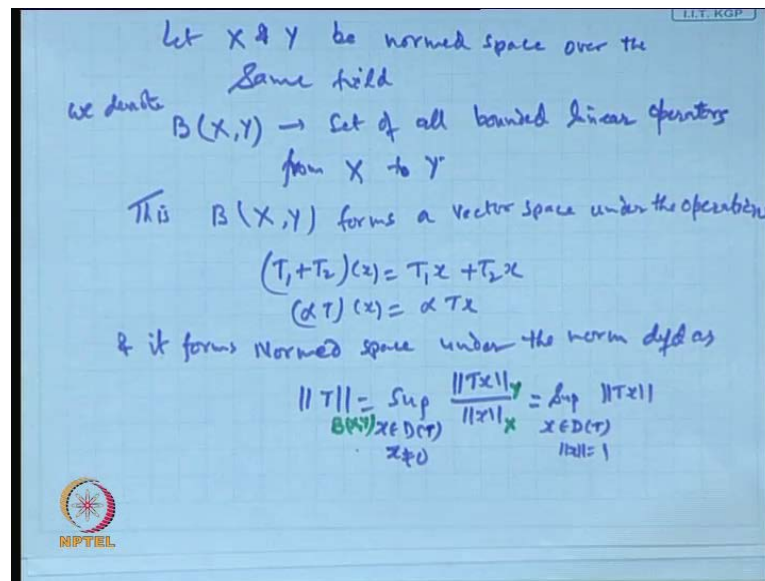 I.I.T. KGP
Let X & Y be normed space over the
Same field
we denote B(X,Y) → Set of all bounded linear operators
from X to Y
This B(X,Y) forms a vector space under the operation
(T₁+T₂)(x) = T₁x + T₂x
(αT)(x) = αTx
& it forms Normed space under the norm dfd as
||T||_B(X,Y) = Sup_{x∈D(T), x≠0} ||Tx||_Y / ||x||_X = Sup_{x∈D(T), ||x||=1} ||Tx||
NPTEL